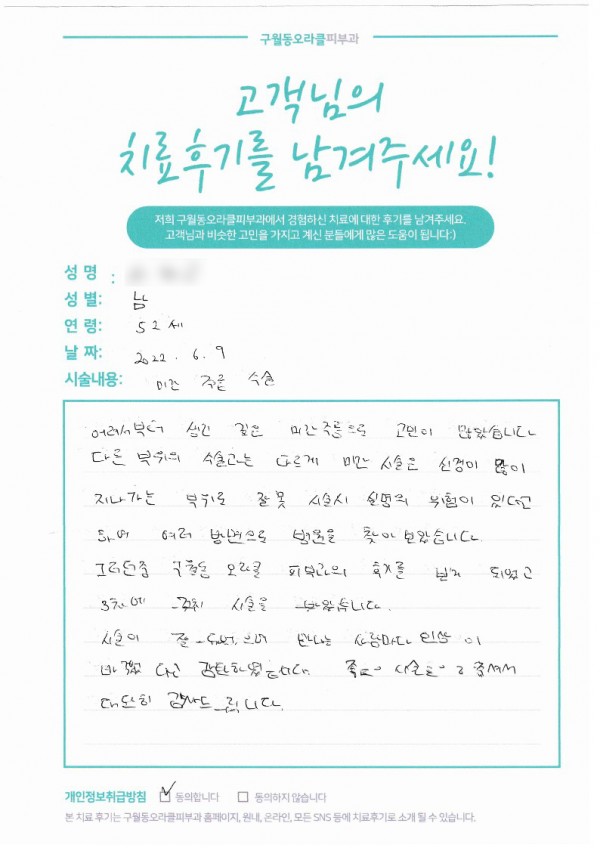 구월동오라클피부과
고객님의
치료후기를 남겨주세요!
저희 구월동오라클피부과에서 경험하신 치료에 대한 후기를 남겨주세요.
고객님과 비슷한 고민을 가지고 계신 분들에게 많은 도움이 됩니다:)
성 명 :
성 별: 남
연 령: 52세
날 짜: 2022. 6. 9
시술내용: 미간 주름 시술
어려서부터 생긴 깊은 미간주름으로 고민이 많았습니다
다른 부위의 시술과는 다르게 미간 시술은 신경이 많이
지나가는 부위로 잘못 시술시 실명의 위험이 있다고
하여 여러 방면으로 병원을 찾아 보았습니다.
그러던중 구월동 오라클 피부과의 후기를 보게 되었고
3차에 시술을 받았습니다.
시술이 잘 만나는 사람마다 인상이
바꼈다고 감탄하였습니다. 좋은 시술을 해 주셔서
대단히 감사드립니다.
개인정보취급방침 ☑ 동의합니다 ☐ 동의하지 않습니다
본 치료 후기는 구월동오라클피부과 홈페이지, 원내, 온라인, 모든 SNS 등에 치료후기로 소개 될 수 있습니다.